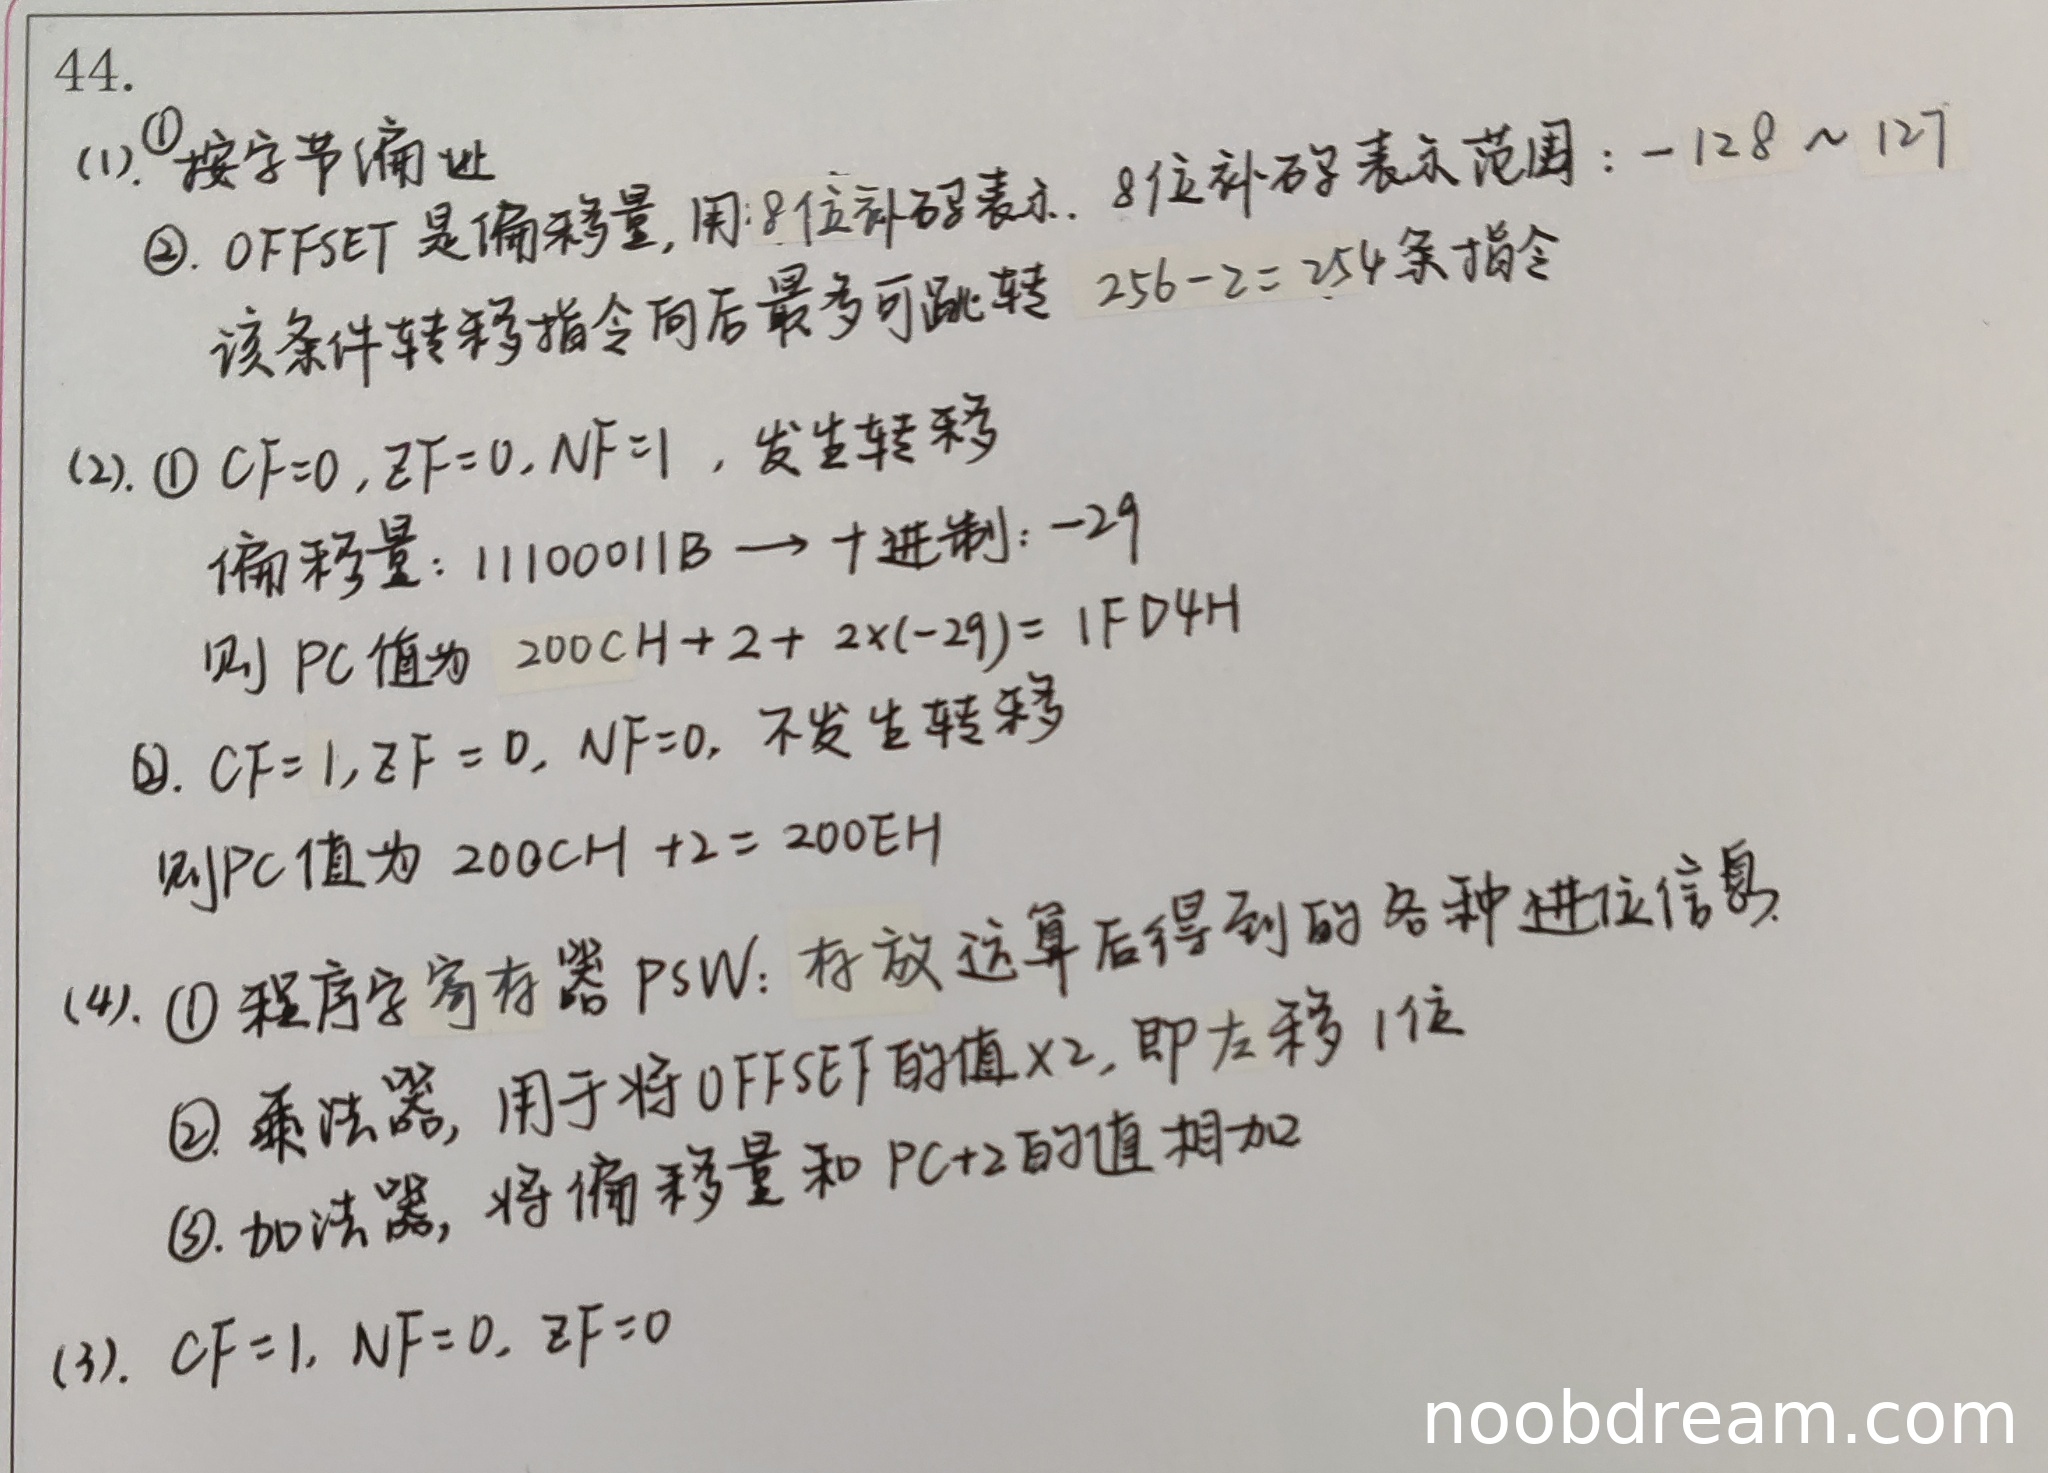 44.
(1).①按字节编址
②. OFFSET是偏移量,用8位补码表示. 8位补码表示范围:-128~127
该条件转移指令向后最多可跳转 256-2=254条指令
(2).① CF=0,ZF=0,NF=1,发生转移
偏移量:11100011B→十进制:-29
则PC值为 200CH+2+2×(-29)=1FD4H
②. CF=1,ZF=0,NF=0,不发生转移
则PC值为 200CH+2=200EH
(4).①程序字寄存器PSW:存放运算后得到的各种进位信息.
②.乘法器,用于将OFFSET的值×2,即左移1位
③.加法器,将偏移量和PC+2的值相加
(3). CF=1, NF=0, ZF=0
noobdream.com